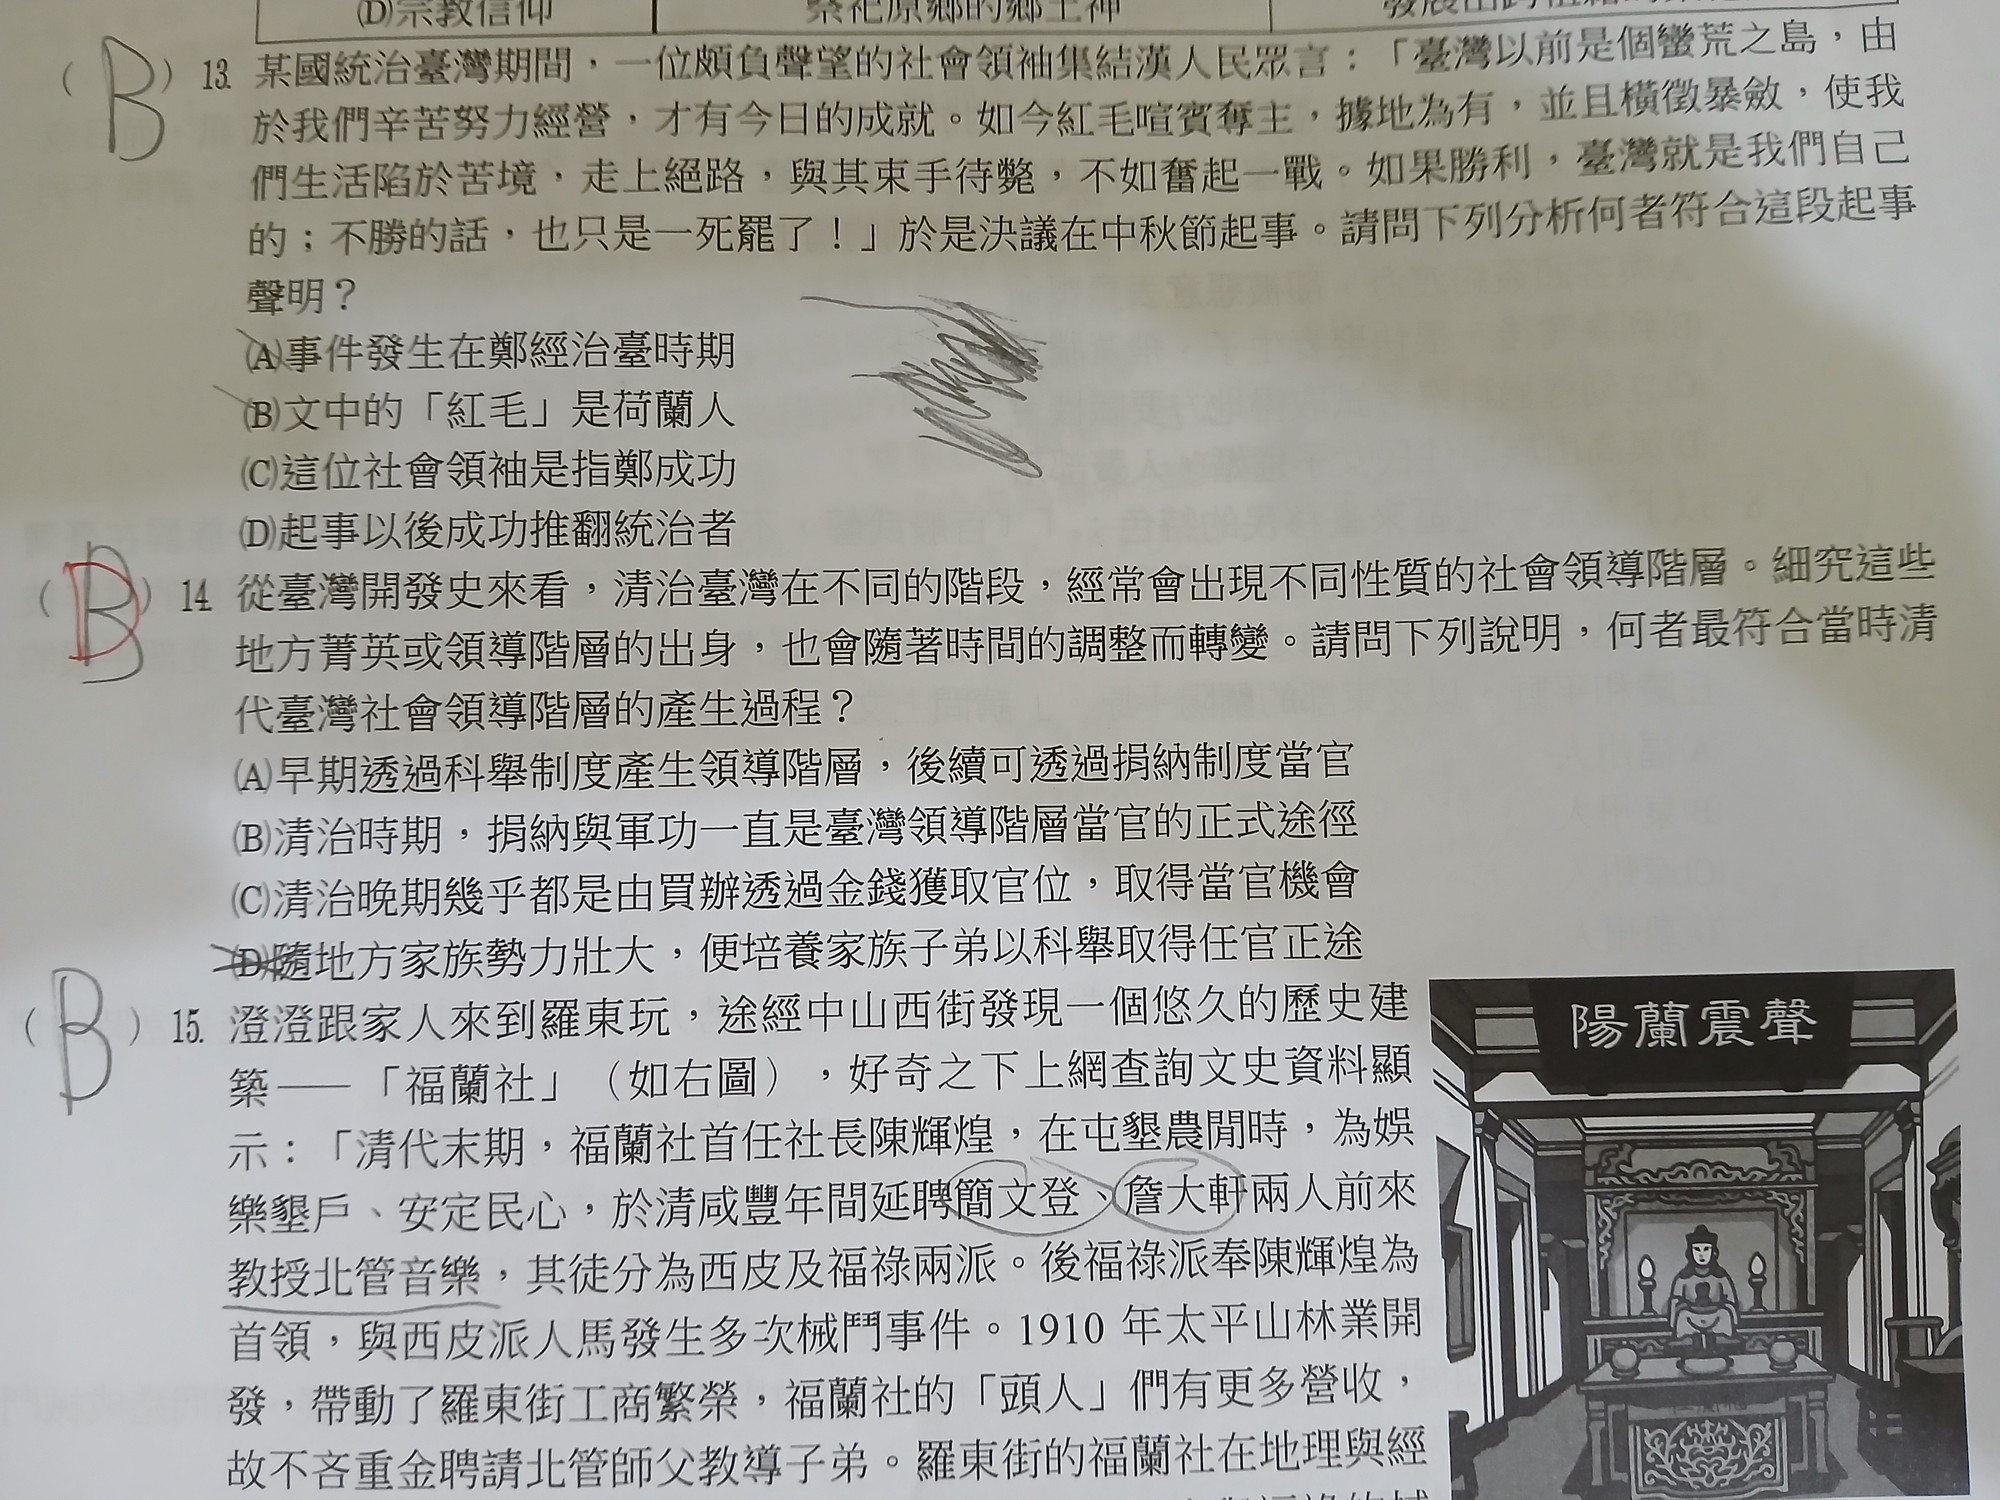 (D)宗教信仰 祭祀原鄉的鄉土神
( B ) 13. 某國統治臺灣期間，一位頗負聲望的社會領袖集結漢人民眾言：「臺灣以前是個蠻荒之島，由
於我們辛苦努力經營，才有今日的成就。如今紅毛喧賓奪主，據地為有，並且橫徵暴斂，使我
們生活陷於苦境，走上絕路，與其束手待斃，不如奮起一戰。如果勝利，臺灣就是我們自己
的；不勝的話，也只是一死罷了！」於是決議在中秋節起事。請問下列分析何者符合這段起事
聲明？
(A)事件發生在鄭經治臺時期
(B)文中的「紅毛」是荷蘭人
(C)這位社會領袖是指鄭成功
(D)起事以後成功推翻統治者
( B D ) 14. 從臺灣開發史來看，清治臺灣在不同的階段，經常會出現不同性質的社會領導階層。細究這些
地方菁英或領導階層的出身，也會隨著時間的調整而轉變。請問下列說明，何者最符合當時清
代臺灣社會領導階層的產生過程？
(A)早期透過科舉制度產生領導階層，後續可透過捐納制度當官
(B)清治時期，捐納與軍功一直是臺灣領導階層當官的正式途徑
(C)清治晚期幾乎都是由買辦透過金錢獲取官位，取得當官機會
(D)隨地方家族勢力壯大，便培養家族子弟以科舉取得任官正途
( B ) 15. 澄澄跟家人來到羅東玩，途經中山西街發現一個悠久的歷史建
築——「福蘭社」（如右圖），好奇之下上網查詢文史資料顯
示：「清代末期，福蘭社首任社長陳輝煌，在屯墾農閒時，為娛
樂墾戶、安定民心，於清咸豐年間延聘簡文登、詹大軒兩人前來
教授北管音樂，其徒分為西皮及福祿兩派。後福祿派奉陳輝煌為
首領，與西皮派人馬發生多次械鬥事件。1910 年太平山林業開
發，帶動了羅東街工商繁榮，福蘭社的「頭人」們有更多營收，
故不吝重金聘請北管師父教導子弟。羅東街的福蘭社在地理與經
陽蘭震聲